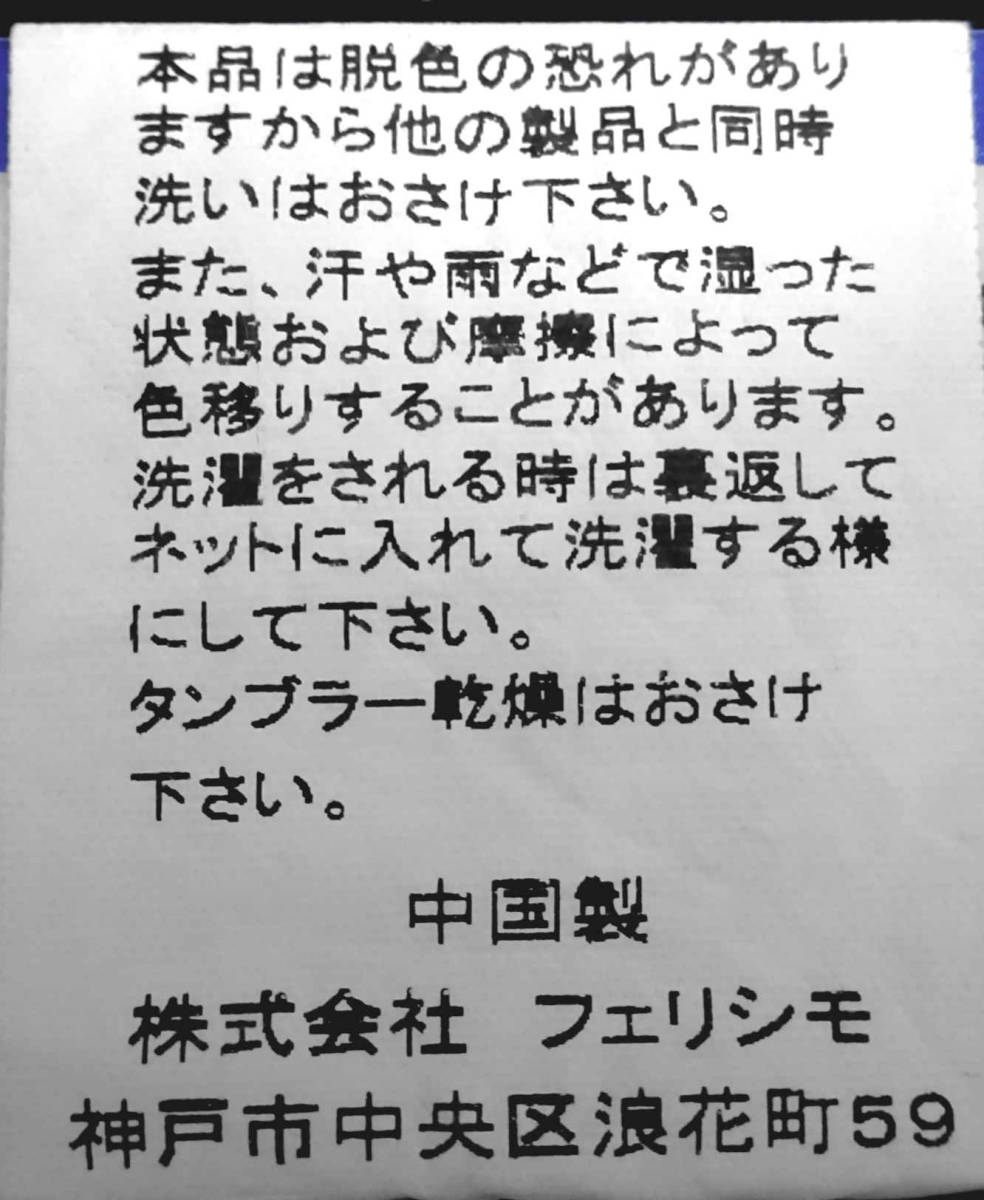 本品は脱色の恐れがあり
ますから他の製品と同時
洗いはおさけ下さい。
また、汗や雨などで湿った
状態および摩擦によって
色移りすることがあります。
洗濯をされる時は裏返して
ネットに入れて洗濯する様
にして下さい。
タンブラー乾燥はおさけ
下さい。
中国製
株式会社 フェリシモ
神戸市中央区浪花町59